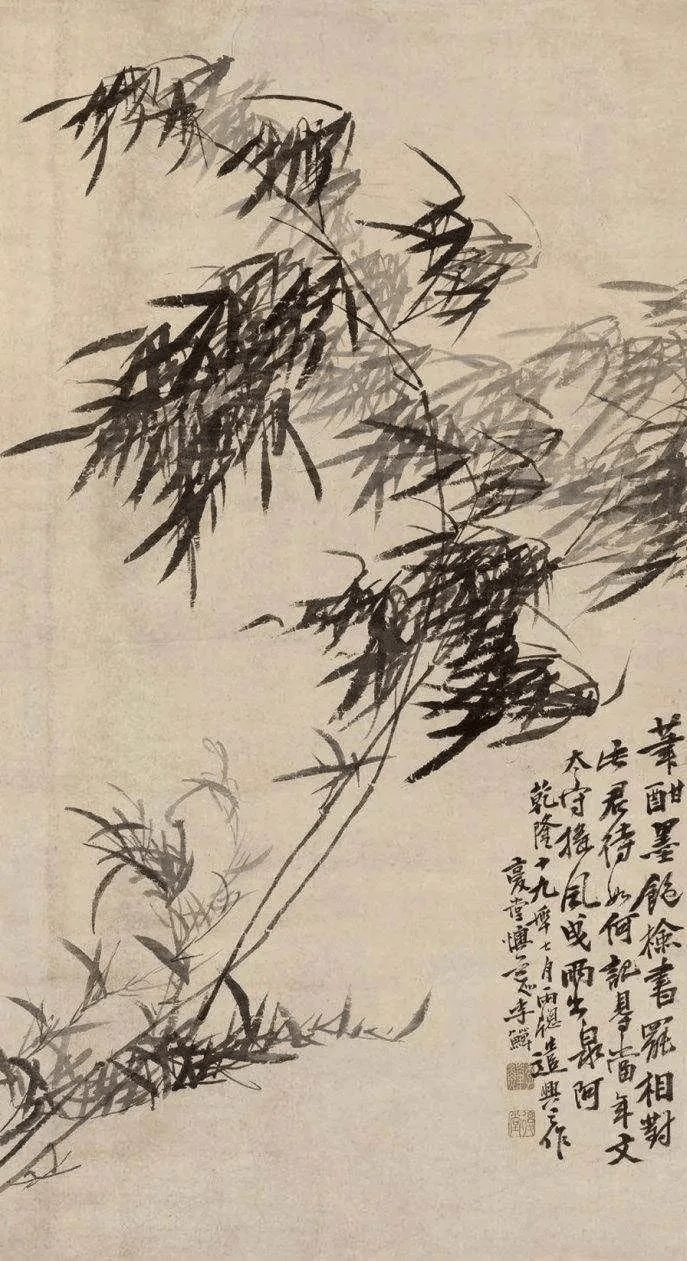 筆酣墨飽檢書罷相對
此君待如何記得當年文
太守搖風雨出阿
乾隆十九年七月雨牕遣興之作
復堂懊道人李鱓